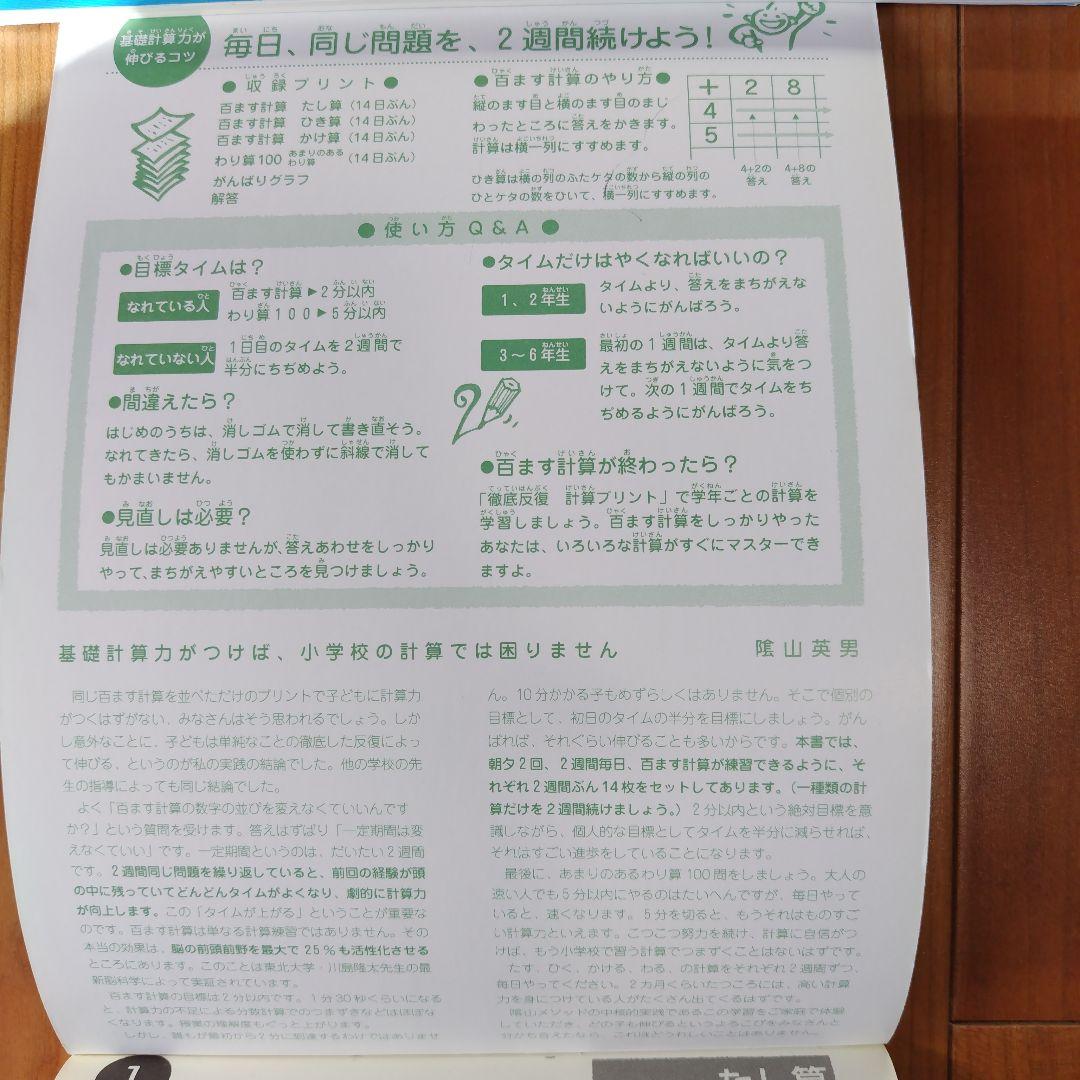 基礎計算力が
伸びるコツ
毎日、同じ問題を、2週間続けよう!
●収録プリント●
百ます計算 たし算(14日ぶん)
百ます計算 ひき算(14日ぶん)
百ます計算 かけ算(14日ぶん)
わり算100 あまりのあるわり算(14日ぶん)
がんばりグラフ
解答
●百ます計算のやり方●
縦のます目と横のます目のまじ
わったところに答えをかきます。
計算は横一列にすすめます。
ひき算は横の列のふたケタの数から縦の列の
ひとケタの数をひいて、横一列にすすめます。
+ 2 8
4
5
4+2の
答え
4+8の
答え
●使い方Q&A●
●目標タイムは?
なれている人
百ます計算▶2分以内
わり算100▶5分以内
なれていない人
1日目のタイムを2週間で
半分にちぢめよう。
●間違えたら?
はじめのうちは、消しゴムで消して書き直そう。
なれてきたら、消しゴムを使わずに斜線で消して
もかまいません。
●見直しは必要?
見直しは必要ありませんが、答えあわせをしっかり
やって、まちがえやすいところを見つけましょう。
●タイムだけはやくなればいいの?
1、2年生
タイムより、答えをまちがえな
いようにがんばろう。
3~6年生
最初の1週間は、タイムより答
えをまちがえないように気をつ
けて。次の1週間でタイムをち
ぢめるようにがんばろう。
●百ます計算が終わったら?
「徹底反復 計算プリント」で学年ごとの計算を
学習しましょう。百ます計算をしっかりやった
あなたは、いろいろな計算がすぐにマスターでき
ますよ。
基礎計算力がつけば、小学校の計算では困りません
陰山英男
同じ百ます計算を並べただけのプリントで子どもに計算力
がつくはずがない、みなさんはそう思われるでしょう。しか
し意外なことに、子どもは単純なことの徹底した反復によっ
て伸びる、というのが私の実践の結論でした。他の学校の先
生の指導によっても同じ結論でした。
よく「百ます計算の数字の並びを変えなくていいんです
か?」という質問を受けます。答えはずばり「一定期間は変
えなくていい」です。一定期間というのは、だいたい2週間
です。2週間同じ問題を繰り返していると、前回の経験が頭
の中に残っていてどんどんタイムがよくなり、劇的に計算力
が向上します。この「タイムが上がる」ということが重要な
のです。百ます計算は単なる計算練習ではありません。その
本当の効果は、脳の前頭前野を最大で25%も活性化させる
ところにあります。このことは東北大学・川島隆太先生の最
新脳科学によって実証されています。
百ます計算の目標は2分以内です。1分30秒くらいになる
と、計算力の不足による分数計算でのつまずきなどはほぼな
くなります。授業の理解度もぐっと上がります。
しかし、誰もが最初から2分に到達するわけではありませ
ん。10分かかる子もめずらしくはありません。そこで個別の
目標として、初日のタイムの半分を目標にしましょう。がん
ばれば、それぐらい伸びることも多いからです。本書では、
朝夕2回、2週間毎日、百ます計算が練習できるように、そ
れぞれ2週間ぶん14枚をセットしてあります。(一種類の計
算だけを2週間続けましょう。) 2分以内という絶対目標を意
識しながら、個人的な目標としてタイムを半分に減らせれば、
それはすごい進歩をしていることになります。
最後に、あまりのあるわり算100問をしましょう。大人の
速い人でも5分以内にやるのはたいへんですが、毎日やって
いると、速くなります。5分を切ると、もうそれはものすご
い計算力といえます。こつこつ努力を続け、計算に自信がつ
けば、もう小学校で習う計算でつまずくことはないはずです。
たす、ひく、かける、わる、の計算をそれぞれ2週間ずつ、
毎日やってください。2カ月くらいたつころには、高い計算
力を身につけている人がたくさん出てくるはずです。
陰山メソッドの中核的実践であるこの学習をご家庭で体験
していただき、どの子も伸びるというよろこびをみなさんと
分かち合えたなら、これほどうれしいことはありません。
1
たし算